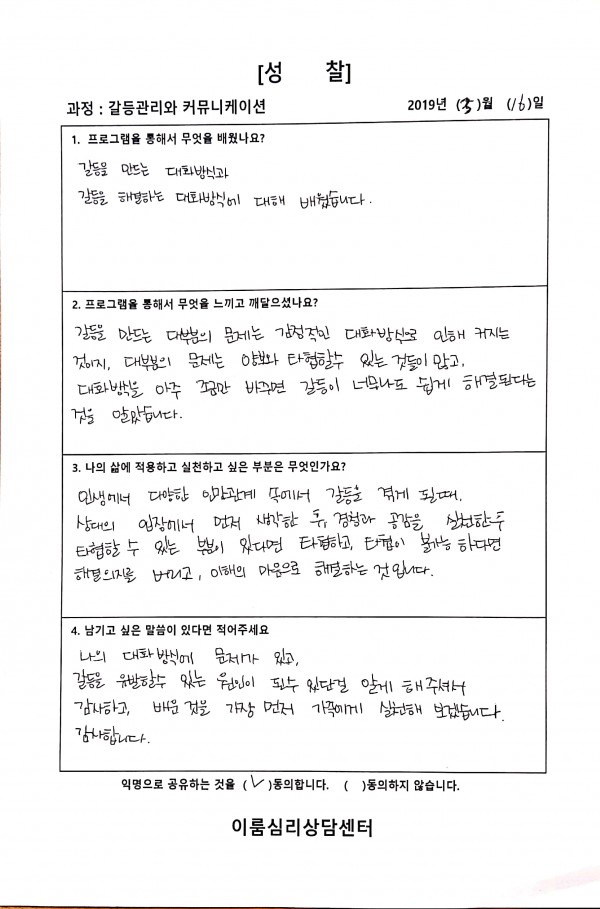 [성 찰]
과정 : 갈등관리와 커뮤니케이션 2019년 (3)월 (16)일
1. 프로그램을 통해서 무엇을 배웠나요?
갈등을 만드는 대화방식과
갈등을 해결하는 대화방식에 대해 배웠습니다.
2. 프로그램을 통해서 무엇을 느끼고 깨달으셨나요?
갈등을 만드는 대부분의 문제는 감정적인 대화방식으로 인해 커지는
것이지, 대부분의 문제는 양보와 타협할수 있는 것들이 많고,
대화방식을 아주 조금만 바꾸면 갈등이 너무나도 쉽게 해결된다는
것을 알았습니다.
3. 나의 삶에 적용하고 실천하고 싶은 부분은 무엇인가요?
인생에서 다양한 인간관계 속에서 갈등을 겪게 될때,
상대의 입장에서 먼저 생각한 후, 경청과 공감을 실천한후
타협할 수 있는 부분이 있다면 타협하고, 타협이 불가능 하다면
해결의지를 버리고, 이해의 마음으로 해결하는 것입니다.
4. 남기고 싶은 말씀이 있다면 적어주세요
나의 대화방식에 문제가 있고,
갈등을 유발할수 있는 원인이 될수 있단걸 알게 해주셔서
감사하고, 배운 것을 가장 먼저 가족에게 실천해 보겠습니다.
감사합니다.
익명으로 공유하는 것을 (✓)동의합니다. ( )동의하지 않습니다.
이룸심리상담센터